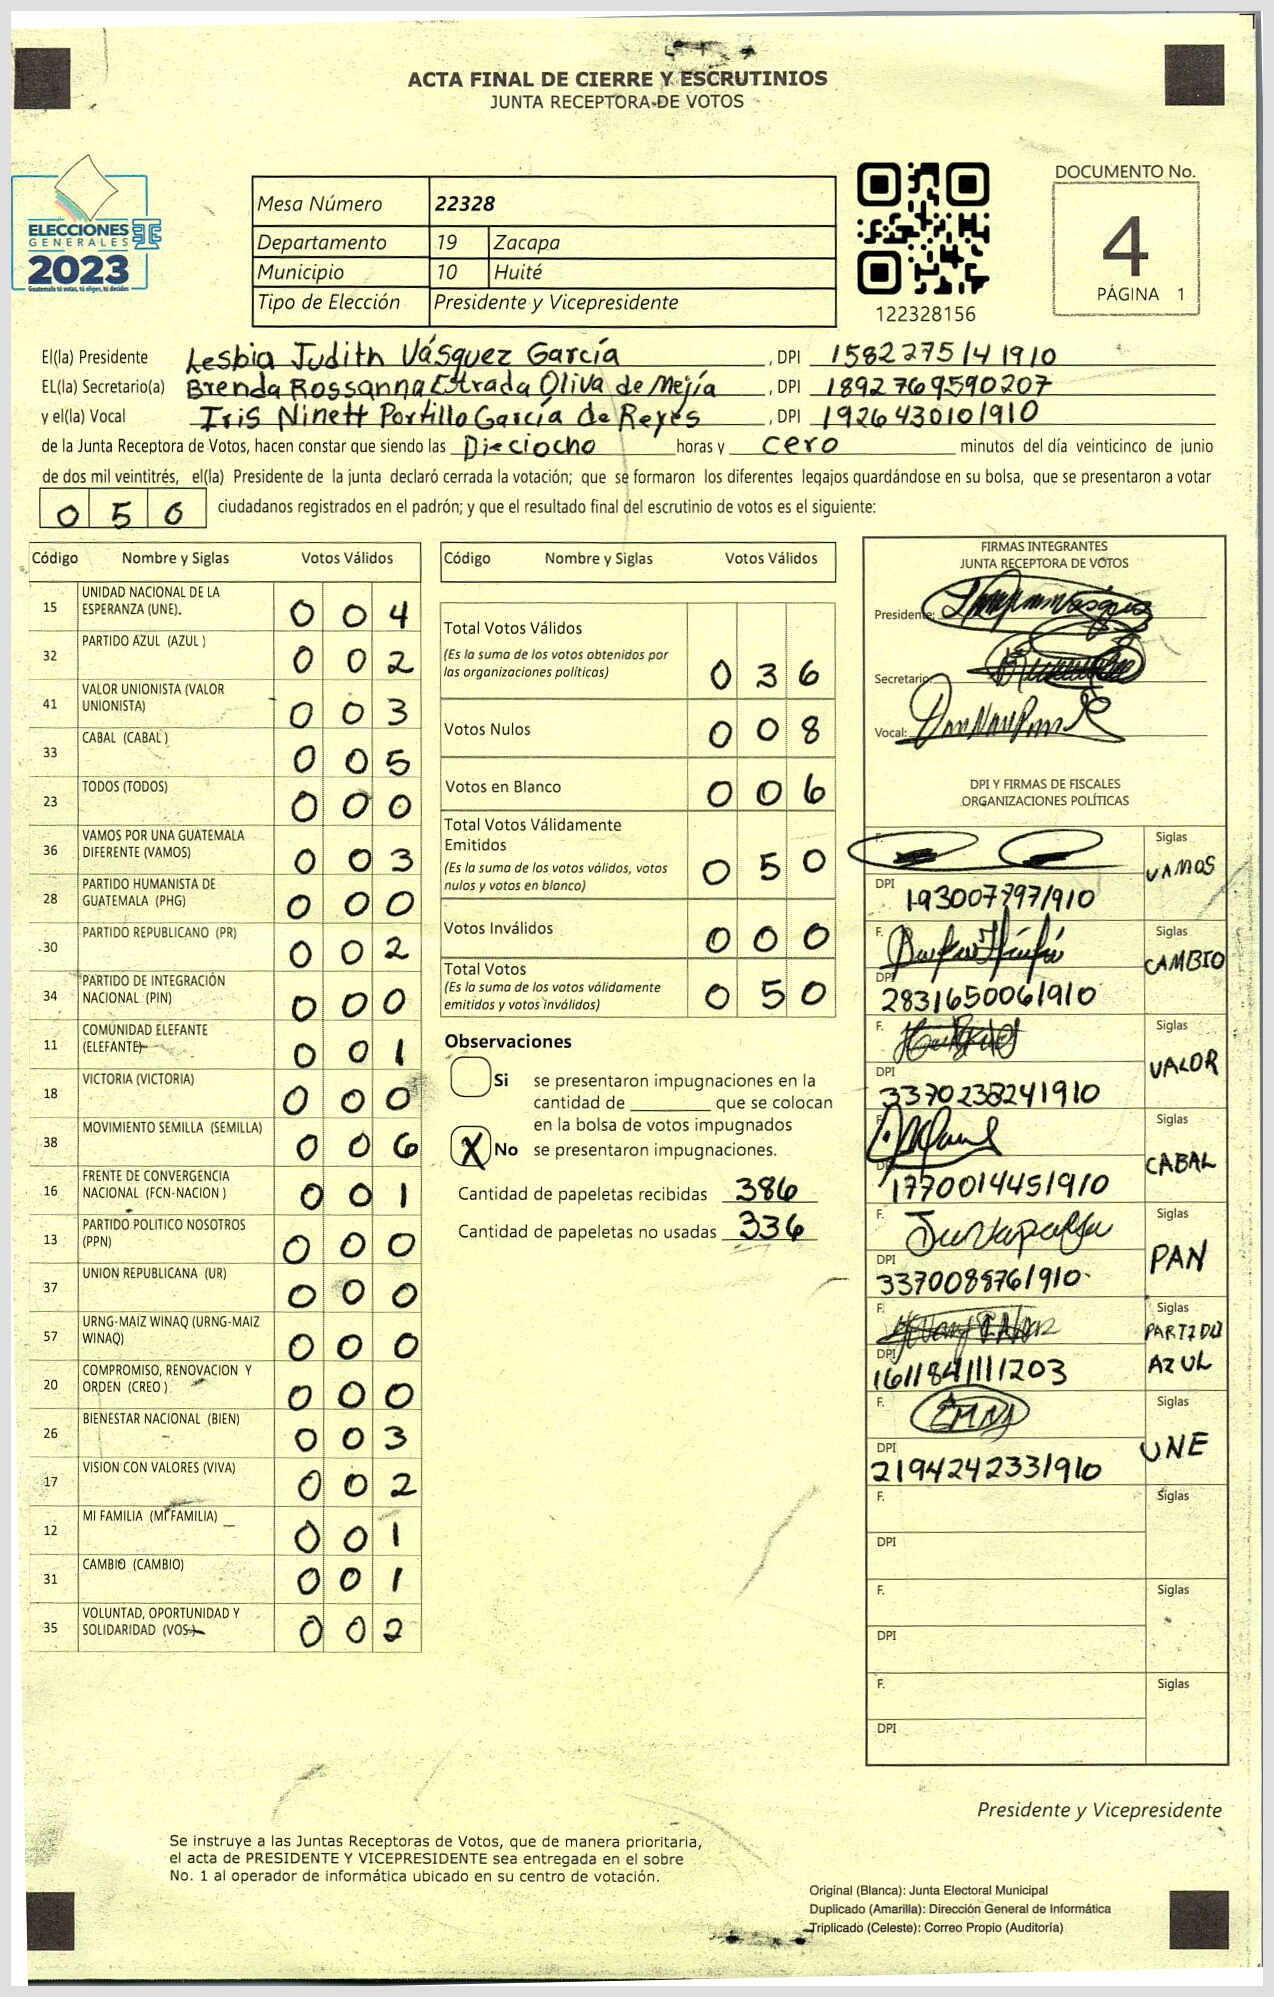 ACTA FINAL DE CIERRE Y ESCRUTINIOS
JUNTA RECEPTORA DE VOTOS
ELECCIONES
GENERALES
2023
Guatemala tú votas, tú eliges, tú decides
Mesa Número 22328
Departamento 19 Zacapa
Municipio 10 Huité
Tipo de Elección Presidente y Vicepresidente
122328156
DOCUMENTO No.
4
PÁGINA 1
El(la) Presidente Lesbia Judith Vásquez García , DPI 1582275141910
EL(la) Secretario(a) Brenda Rossanna Estrada Oliva de Mejía , DPI 1892769590207
y el(la) Vocal Iris Ninett Portillo García de Reyes , DPI 1926430101910
de la Junta Receptora de Votos, hacen constar que siendo las Dieciocho horas y cero minutos del día veinticinco de junio
de dos mil veintitrés, el(la) Presidente de la junta declaró cerrada la votación; que se formaron los diferentes legajos guardándose en su bolsa, que se presentaron a votar
0 5 0 ciudadanos registrados en el padrón; y que el resultado final del escrutinio de votos es el siguiente:
Código Nombre y Siglas Votos Válidos
15 UNIDAD NACIONAL DE LA
ESPERANZA (UNE). 0 0 4
32 PARTIDO AZUL (AZUL ) 0 0 2
41 VALOR UNIONISTA (VALOR
UNIONISTA) 0 0 3
33 CABAL (CABAL ) 0 0 5
23 TODOS (TODOS) 0 0 0
36 VAMOS POR UNA GUATEMALA
DIFERENTE (VAMOS) 0 0 3
28 PARTIDO HUMANISTA DE
GUATEMALA (PHG) 0 0 0
30 PARTIDO REPUBLICANO (PR) 0 0 2
34 PARTIDO DE INTEGRACIÓN
NACIONAL (PIN) 0 0 0
11 COMUNIDAD ELEFANTE
(ELEFANTE) 0 0 1
18 VICTORIA (VICTORIA) 0 0 0
38 MOVIMIENTO SEMILLA (SEMILLA) 0 0 6
16 FRENTE DE CONVERGENCIA
NACIONAL (FCN-NACION ) 0 0 1
13 PARTIDO POLITICO NOSOTROS
(PPN) 0 0 0
37 UNION REPUBLICANA (UR) 0 0 0
57 URNG-MAIZ WINAQ (URNG-MAIZ
WINAQ) 0 0 0
20 COMPROMISO, RENOVACION Y
ORDEN (CREO ) 0 0 0
26 BIENESTAR NACIONAL (BIEN) 0 0 3
17 VISION CON VALORES (VIVA) 0 0 2
12 MI FAMILIA (MI FAMILIA) 0 0 1
31 CAMBIO (CAMBIO) 0 0 1
35 VOLUNTAD, OPORTUNIDAD Y
SOLIDARIDAD (VOS) 0 0 2
Código Nombre y Siglas Votos Válidos
Total Votos Válidos
(Es la suma de los votos obtenidos por
las organizaciones políticas) 0 3 6
Votos Nulos 0 0 8
Votos en Blanco 0 0 6
Total Votos Válidamente
Emitidos
(Es la suma de los votos válidos, votos
nulos y votos en blanco) 0 5 0
Votos Inválidos 0 0 0
Total Votos
(Es la suma de los votos válidamente
emitidos y votos inválidos) 0 5 0
Observaciones
Si se presentaron impugnaciones en la
cantidad de ________ que se colocan
en la bolsa de votos impugnados
X No se presentaron impugnaciones.
Cantidad de papeletas recibidas 386
Cantidad de papeletas no usadas 336
FIRMAS INTEGRANTES
JUNTA RECEPTORA DE VOTOS
Presidente:
Secretario:
Vocal:
DPI Y FIRMAS DE FISCALES
ORGANIZACIONES POLÍTICAS
F. Siglas
VAMOS
DPI 1930077971910
F. Siglas
CAMBIO
DPI 2831650061910
F. Siglas
VALOR
DPI 3370238241910
F. Siglas
CABAL
DPI 1770014451910
F. Siglas
PAN
DPI 3370088761910
F. Siglas
PARTIDO
AZUL
DPI 1611841111203
F. Siglas
UNE
DPI 2194242331910
F. Siglas
DPI
F. Siglas
DPI
F. Siglas
DPI
Presidente y Vicepresidente
Se instruye a las Juntas Receptoras de Votos, que de manera prioritaria,
el acta de PRESIDENTE Y VICEPRESIDENTE sea entregada en el sobre
No. 1 al operador de informática ubicado en su centro de votación.
Original (Blanca): Junta Electoral Municipal
Duplicado (Amarilla): Dirección General de Informática
Triplicado (Celeste): Correo Propio (Auditoría)